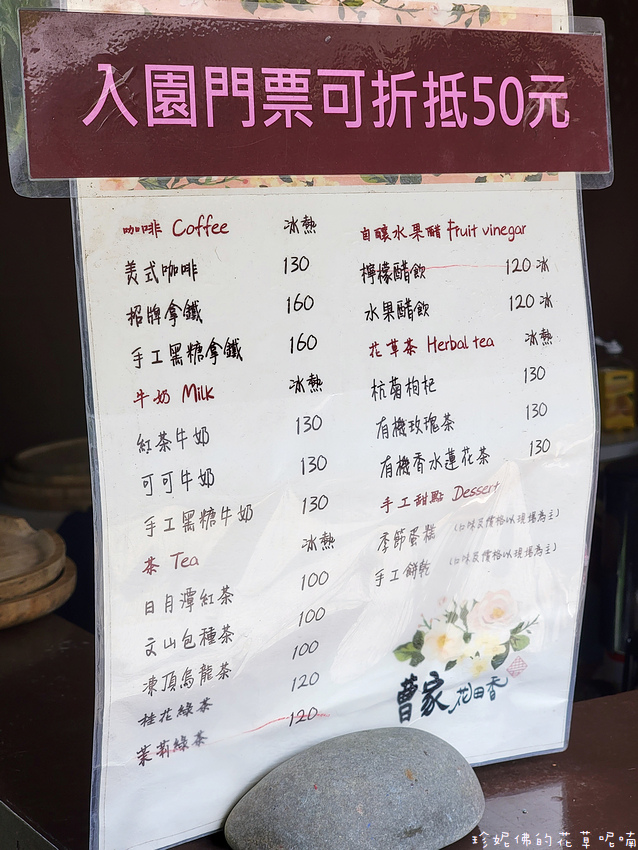 入園門票可折抵50元
咖啡 Coffee 冰熱
美式咖啡 130
招牌拿鐵 160
手工黑糖拿鐵 160
牛奶 Milk 冰熱
紅茶牛奶 130
可可牛奶 130
手工黑糖牛奶 130
茶 Tea 冰熱
日月潭紅茶 100
文山包種茶 100
凍頂烏龍茶 100
桂花綠茶 120
茉莉綠茶 120
自釀水果醋 Fruit vinegar
檸檬醋飲 120 冰
水果醋飲 120 冰
花草茶 Herbal tea 冰熱
杭菊枸杞 130
有機玫瑰茶 130
有機香水蓮花茶 130
手工甜點 Dessert
季節蛋糕 (口味及價格以現場為主)
手工餅乾 (口味及價格以現場為主)
曹家花田香
珍妮佛的花草呢喃